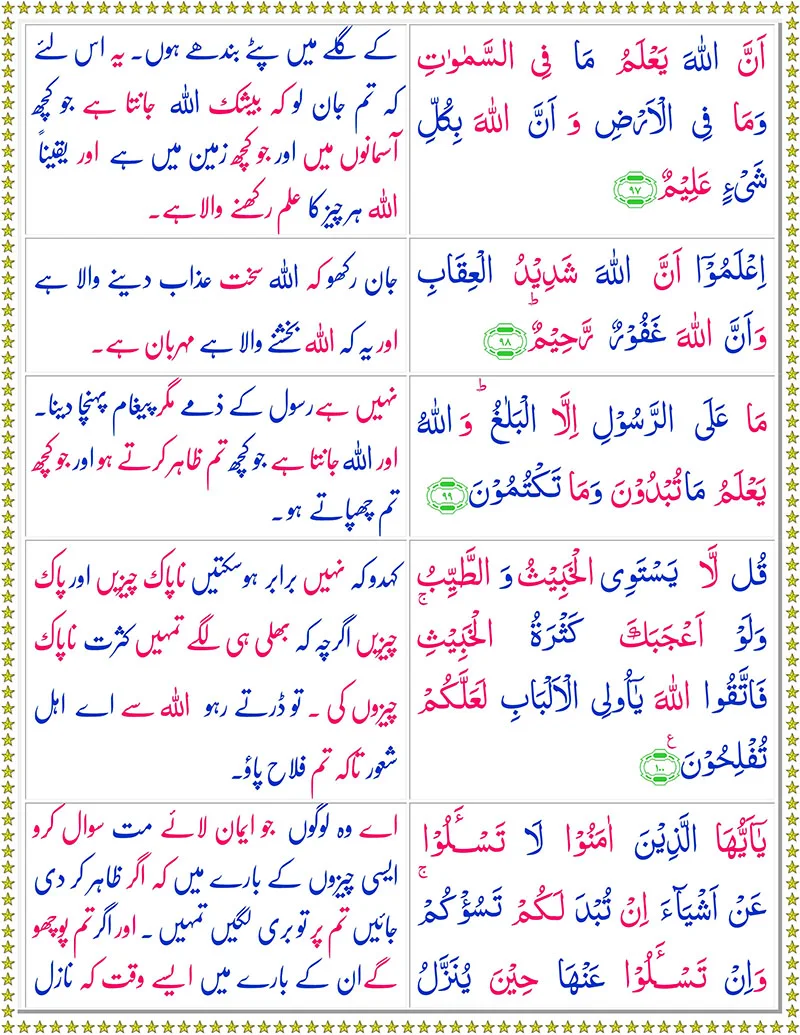 اَنَّ اللّٰهَ يَعْلَمُ مَا فِى السَّمٰوٰتِ
وَمَا فِى الْاَرْضِ وَ اَنَّ اللّٰهَ بِكُلِّ
شَىْءٍ عَلِيْمٌ ﴿۹۷﴾
کے گلے میں پٹے بندھے ہوں۔ یہ اس لئے
کہ تم جان لو کہ بیشک اللہ جانتا ہے جو کچھ
آسمانوں میں اور جو کچھ زمین میں ہے اور یقیناً
اللہ ہر چیز کا علم رکھنے والا ہے۔
اِعْلَمُوْۤا اَنَّ اللّٰهَ شَدِيْدُ الْعِقَابِ
وَاَنَّ اللّٰهَ غَفُوْرٌ رَّحِيْمٌ ؕ ﴿۹۸﴾
جان رکھو کہ اللہ سخت عذاب دینے والا ہے
اور یہ کہ اللہ بخشنے والا ہے مہربان ہے۔
مَا عَلَى الرَّسُوْلِ اِلَّا الْبَلٰغُ ؕ وَ اللّٰهُ
يَعْلَمُ مَا تُبْدُوْنَ وَمَا تَكْتُمُوْنَ ﴿۹۹﴾
نہیں ہے رسول کے ذمے مگر پیغام پہنچا دینا۔
اور اللہ جانتا ہے جو کچھ تم ظاہر کرتے ہو اور جو کچھ
تم چھپاتے ہو۔
قُل لَّا يَسْتَوِى الْخَبِيْثُ وَ الطَّيِّبُ
وَلَوْ اَعْجَبَكَ كَثْرَةُ الْخَبِيْثِ ۚ
فَاتَّقُوا اللّٰهَ يٰۤاُولِى الْاَلْبَابِ لَعَلَّكُمْ
تُفْلِحُوْنَ ﴿۱۰۰﴾ ع
کہدو کہ نہیں برابر ہو سکتیں ناپاک چیزیں اور پاک
چیزیں اگرچہ کہ بھلی ہی لگے تمہیں کثرت ناپاک
چیزوں کی ۔ تو ڈرتے رہو اللہ سے اے اہل
شعور تاکہ تم فلاح پاؤ۔
يٰۤاَيُّهَا الَّذِيْنَ اٰمَنُوْا لَا تَسْـَٔـلُوْا
عَنْ اَشْيَآءَ اِنْ تُبْدَ لَـكُمْ تَسُؤْكُمْ ۚ
وَاِنْ تَسْـَٔـلُوْا عَنْهَا حِيْنَ يُنَزَّلُ
اے وہ لوگوں جو ایمان لائے مت سوال کرو
ایسی چیزوں کے بارے میں کہ اگر ظاہر کر دی
جائیں تم پر تو بری لگیں تمہیں ۔ اور اگر تم پوچھو
گے ان کے بارے میں ایسے وقت کہ نازل